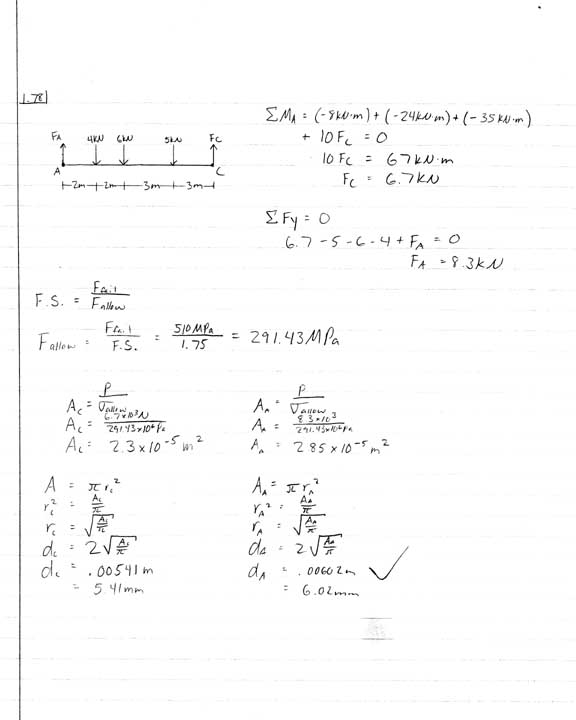 1.78
ΣM_A = (-8kN·m) + (-24kN·m) + (-35kN·m)
+ 10F_C = 0
10F_C = 67kN·m
F_C = 6.7kN
F_A 4kN 6kN 5kN F_C
A C
2m 2m 3m 3m
ΣFy = 0
6.7 - 5 - 6 - 4 + F_A = 0
F_A = 8.3kN
F.S. = F_fail / F_allow
F_allow = F_fail / F.S. = 510MPa / 1.75 = 291.43MPa
A_C = P / σ_allow
A_C = 6.7×10³N / 291.43×10⁶Pa
A_C = 2.3×10⁻⁵m²
A_A = P / σ_allow
A_A = 8.3×10³ / 291.43×10⁶Pa
A_A = 2.85×10⁻⁵m²
A = πr_C²
r_C² = A_C / π
r_C = √(A_C / π)
d_C = 2√(A_C / π)
d_C = .00541m
= 5.41mm
A_A = πr_A²
r_A² = A_A / π
r_A = √(A_A / π)
d_A = 2√(A_A / π)
d_A = .00602m ✓
= 6.02mm